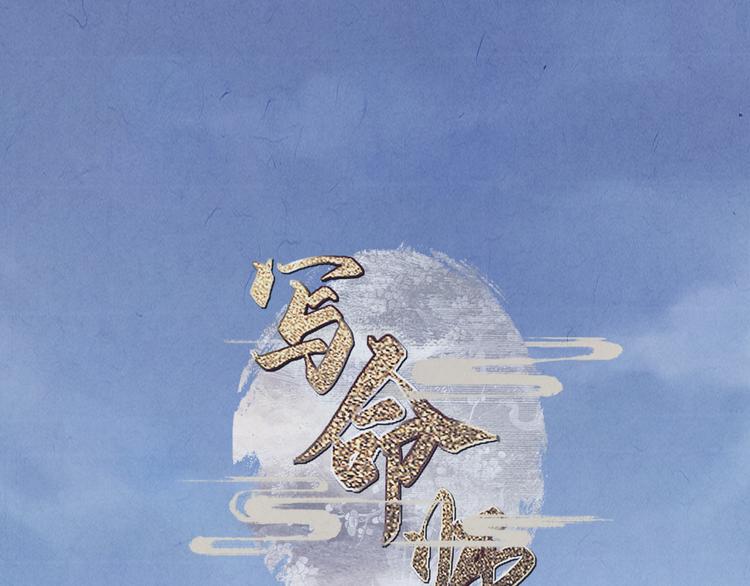 写命师